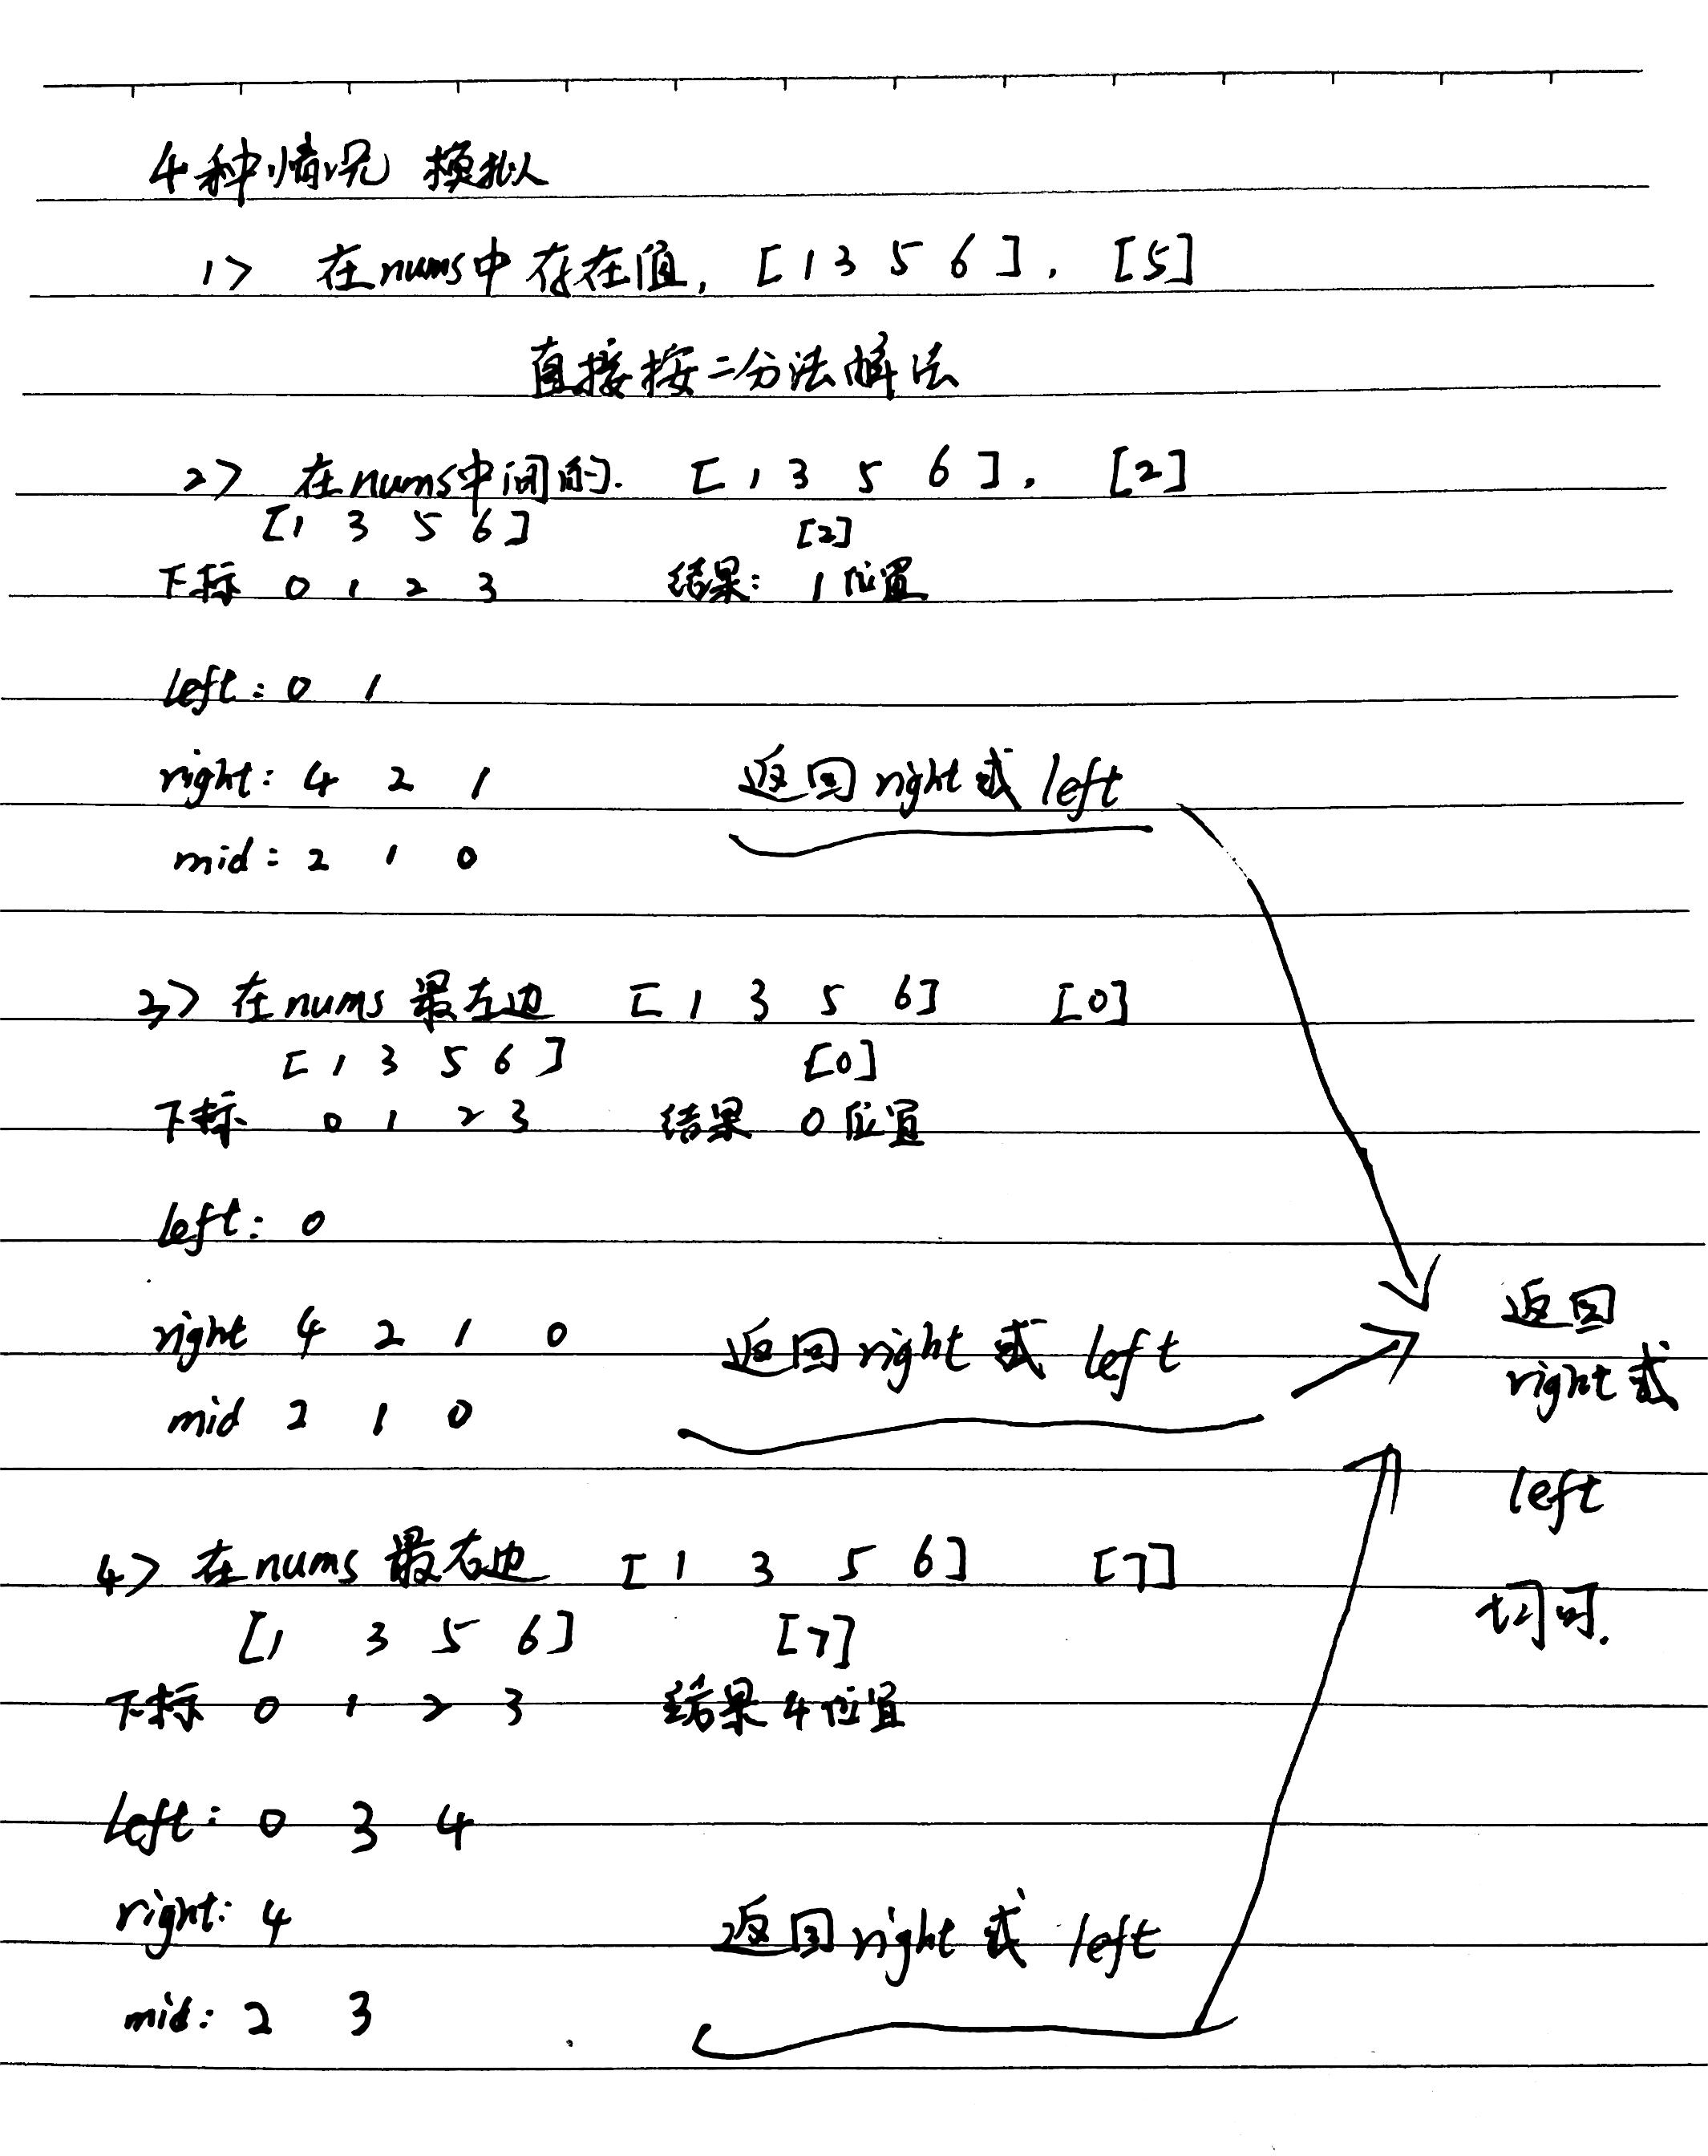 4种情况 模拟
1> 在nums中存在值, [1 3 5 6], [5]
直接按二分法解法
2> 在nums中间的. [1 3 5 6], [2]
[1 3 5 6] [2]
下标 0 1 2 3 结果: 1位置
left: 0 1
right: 4 2 1 返回right或left
mid: 2 1 0
3> 在nums最左边 [1 3 5 6] [0]
[1 3 5 6] [0]
下标 0 1 2 3 结果 0位置
left: 0
right 4 2 1 0 返回right或left
mid 2 1 0
返回
right或
left
均可.
4> 在nums最右边 [1 3 5 6] [7]
[1 3 5 6] [7]
下标 0 1 2 3 结果4位置
left: 0 3 4
right: 4 返回right或left
mid: 2 3